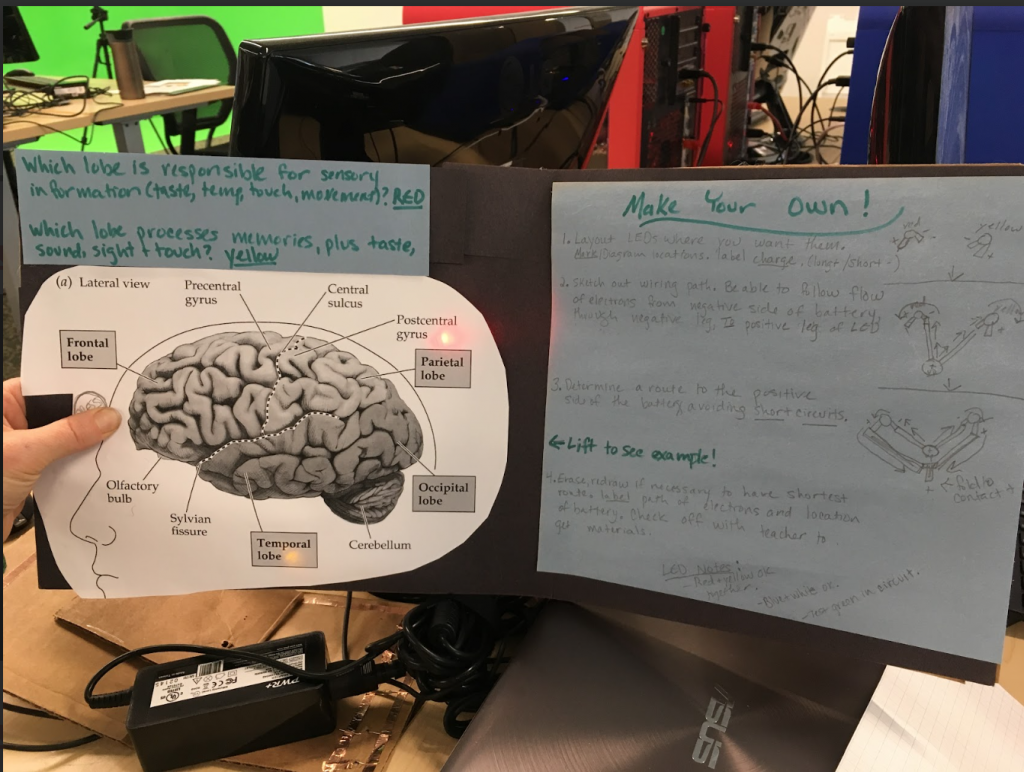 Which lobe is responsible for sensory
information (taste, temp, touch, movement)? RED
Which lobe processes memories, plus taste,
sound, sight + touch? yellow
(a) Lateral view
Precentral
gyrus
Central
sulcus
Postcentral
gyrus
Frontal
lobe
Parietal
lobe
Olfactory
bulb
Sylvian
fissure
Temporal
lobe
Cerebellum
Occipital
lobe
Make Your Own!
1. Layout LEDs where you want them.
Diagram locations. label charge. (long + /short -)
red
yellow
2. Sketch out wiring path. Be able to follow flow
of electrons from negative side of battery,
through negative leg, to positive leg of LED
3. Determine a route to the positive
side of the battery avoiding short circuits.
← Lift to see example!
4. Erase, redraw if necessary to have shortest
route. label path of electrons and location
of battery. Check off with teacher to
get materials.
contact +
LED Notes:
- Red + yellow ok
together.
- Blue + white ok.
green in circuit.
PWR+
ASUS